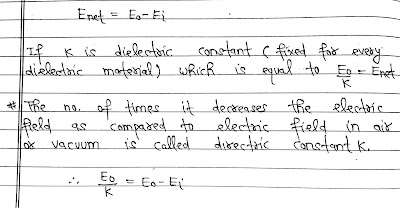 Enet = E₀-Ei
If K is dielectric constant (fixed for every
dielectric material) which is equal to E₀/K = Enet
* The no. of times it decreases the electric
field as compared to electric field in air
or vacuum is called directric constant K.
∴ E₀/K = E₀-Ei